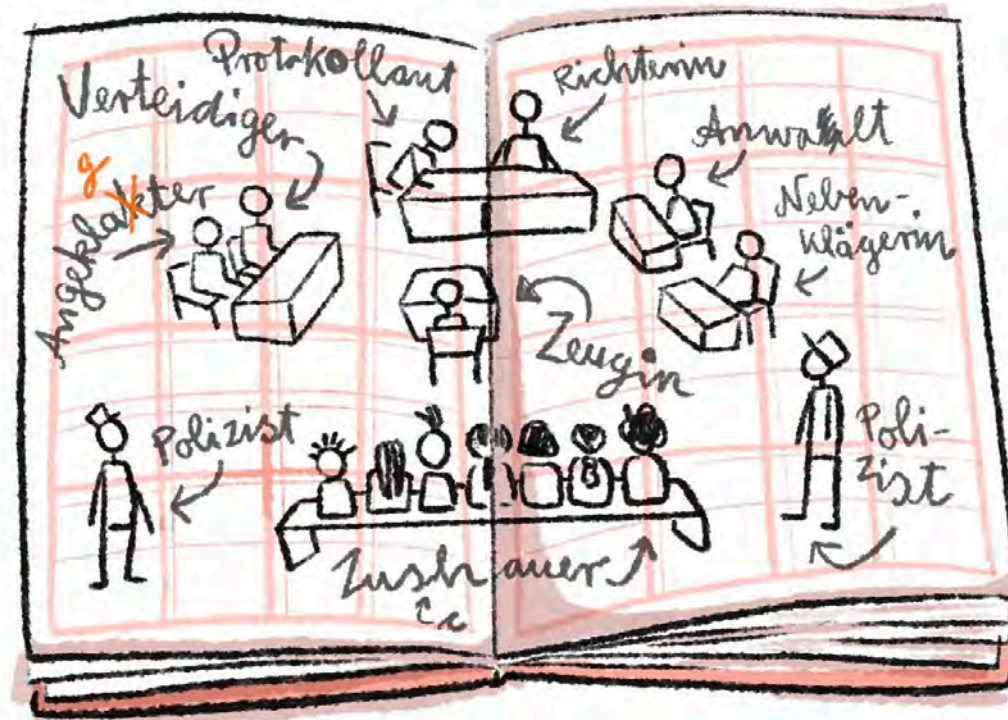 Protokollant
Verteidiger
Angeklakter
g
Richterin
Anwalt
Neben-
klägerin
Zeugin
Polizist
Poli-
zist
Zushauer
c